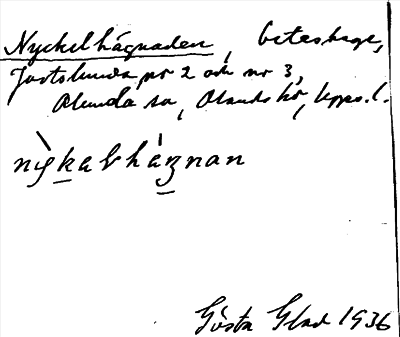 Nyckelhågnaden, beteshage,
Jortslunda nr 2 och nr 3,
Alunda sn, Olands hd, Upps. l.
nỳkalhágnan
Gösta Glad 1936